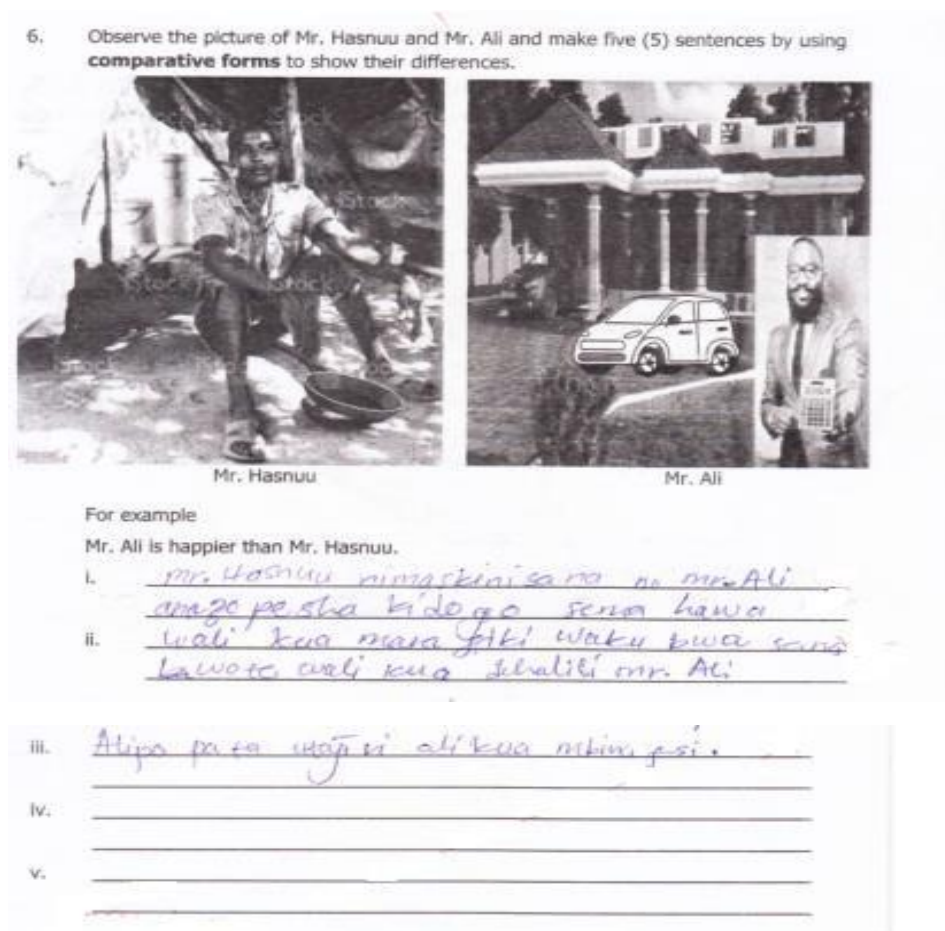 6. Observe the picture of Mr. Hasnuu and Mr. Ali and make five (5) sentences by using
comparative forms to show their differences.
iStock
iStock
iStock
iStock
Mr. Hasnuu
Mr. Ali
For example
Mr. Ali is happier than Mr. Hasnuu.
i. mr. Hasnuu nimaskini sana na mr. Ali
anazo pesha kidogo sema hawa
ii. wali kua mara fiki waku bwa sana
wote wali kua mr. Ali
iii. Alipo pata utajiri alikua
iv.
v.